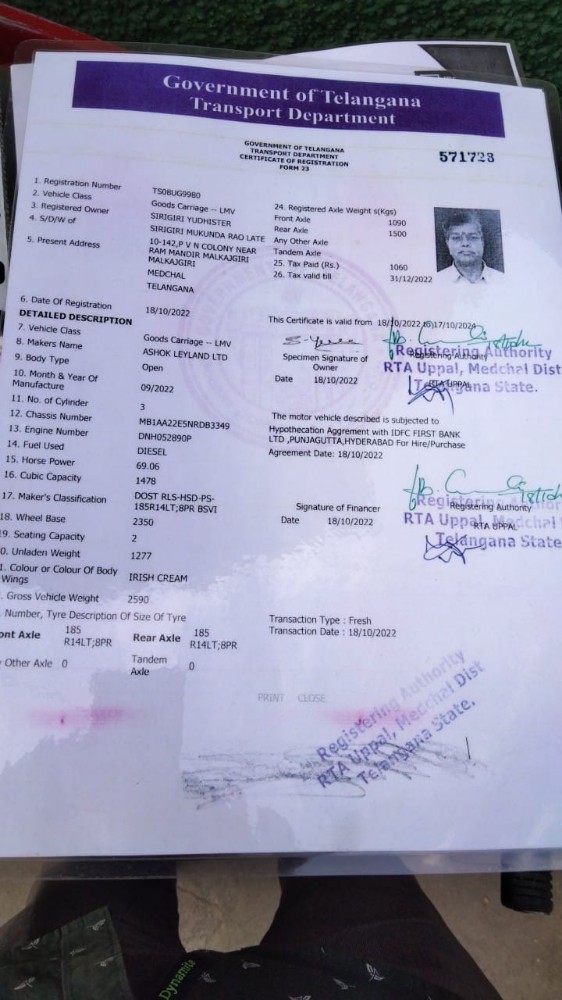 Government of Telangana
Transport Department
GOVERNMENT OF TELANGANA
TRANSPORT DEPARTMENT
CERTIFICATE OF REGISTRATION
FORM 23
571723
1. Registration Number TS08UG9980
2. Vehicle Class Goods Carriage -- LMV
3. Registered Owner SIRIGIRI YUDHISTER
4. S/D/W of SIRIGIRI MUKUNDA RAO LATE
5. Present Address 10-142,P V N COLONY NEAR
RAM MANDIR MALKAJGIRI
MALKAJGIRI
MEDCHAL
TELANGANA
24. Registered Axle Weight s(Kgs)
Front Axle 1090
Rear Axle 1500
Any Other Axle
Tandem Axle
25. Tax Paid (Rs.) 1060
26. Tax valid till 31/12/2022
6. Date Of Registration 18/10/2022
This Certificate is valid from 18/10/2022 to 17/10/2024
DETAILED DESCRIPTION
7. Vehicle Class Goods Carriage -- LMV
8. Makers Name ASHOK LEYLAND LTD
9. Body Type Open
10. Month & Year Of
Manufacture 09/2022
11. No. of Cylinder 3
12. Chassis Number MB1AA22E5NRDB3349
13. Engine Number DNH052890P
14. Fuel Used DIESEL
15. Horse Power 69.06
16. Cubic Capacity 1478
17. Maker's Classification DOST RLS-HSD-PS-
185R14LT;8PR BSVI
18. Wheel Base 2350
19. Seating Capacity 2
0. Unladen Weight 1277
1. Colour or Colour Of Body
Wings IRISH CREAM
. Gross Vehicle Weight 2590
. Number, Tyre Description Of Size Of Tyre
ont Axle 185
R14LT;8PR
Rear Axle 185
R14LT;8PR
Other Axle 0
Tandem
Axle 0
Specimen Signature of
Owner
Date 18/10/2022
Registering Authority
Registering Authority
RTA Uppal, Medchal Dist
RTA UPPAL
Telangana State.
The motor vehicle described is subjected to
Hypothecation Aggrement with IDFC FIRST BANK
LTD ,PUNJAGUTTA,HYDERABAD For Hire/Purchase
Agreement Date: 18/10/2022
Signature of Financer
Date 18/10/2022
Registering Author
Registering Authority
RTA Uppal, Medchal
RTA UPPAL
Telangana State
Transaction Type : Fresh
Transaction Date : 18/10/2022
PRINT CLOSE
Registering Authority
RTA Uppal, Medchal Dist
Telangana State.
Dynamite